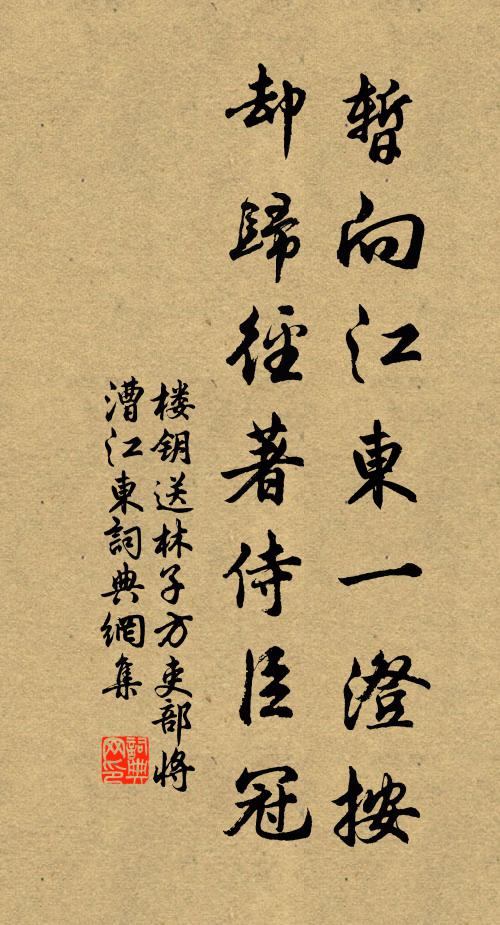 暫向江東一澄按
却歸徑著侍臣冠
楼钥送林子方吏部將
漕江東詞典網集
詞典网印